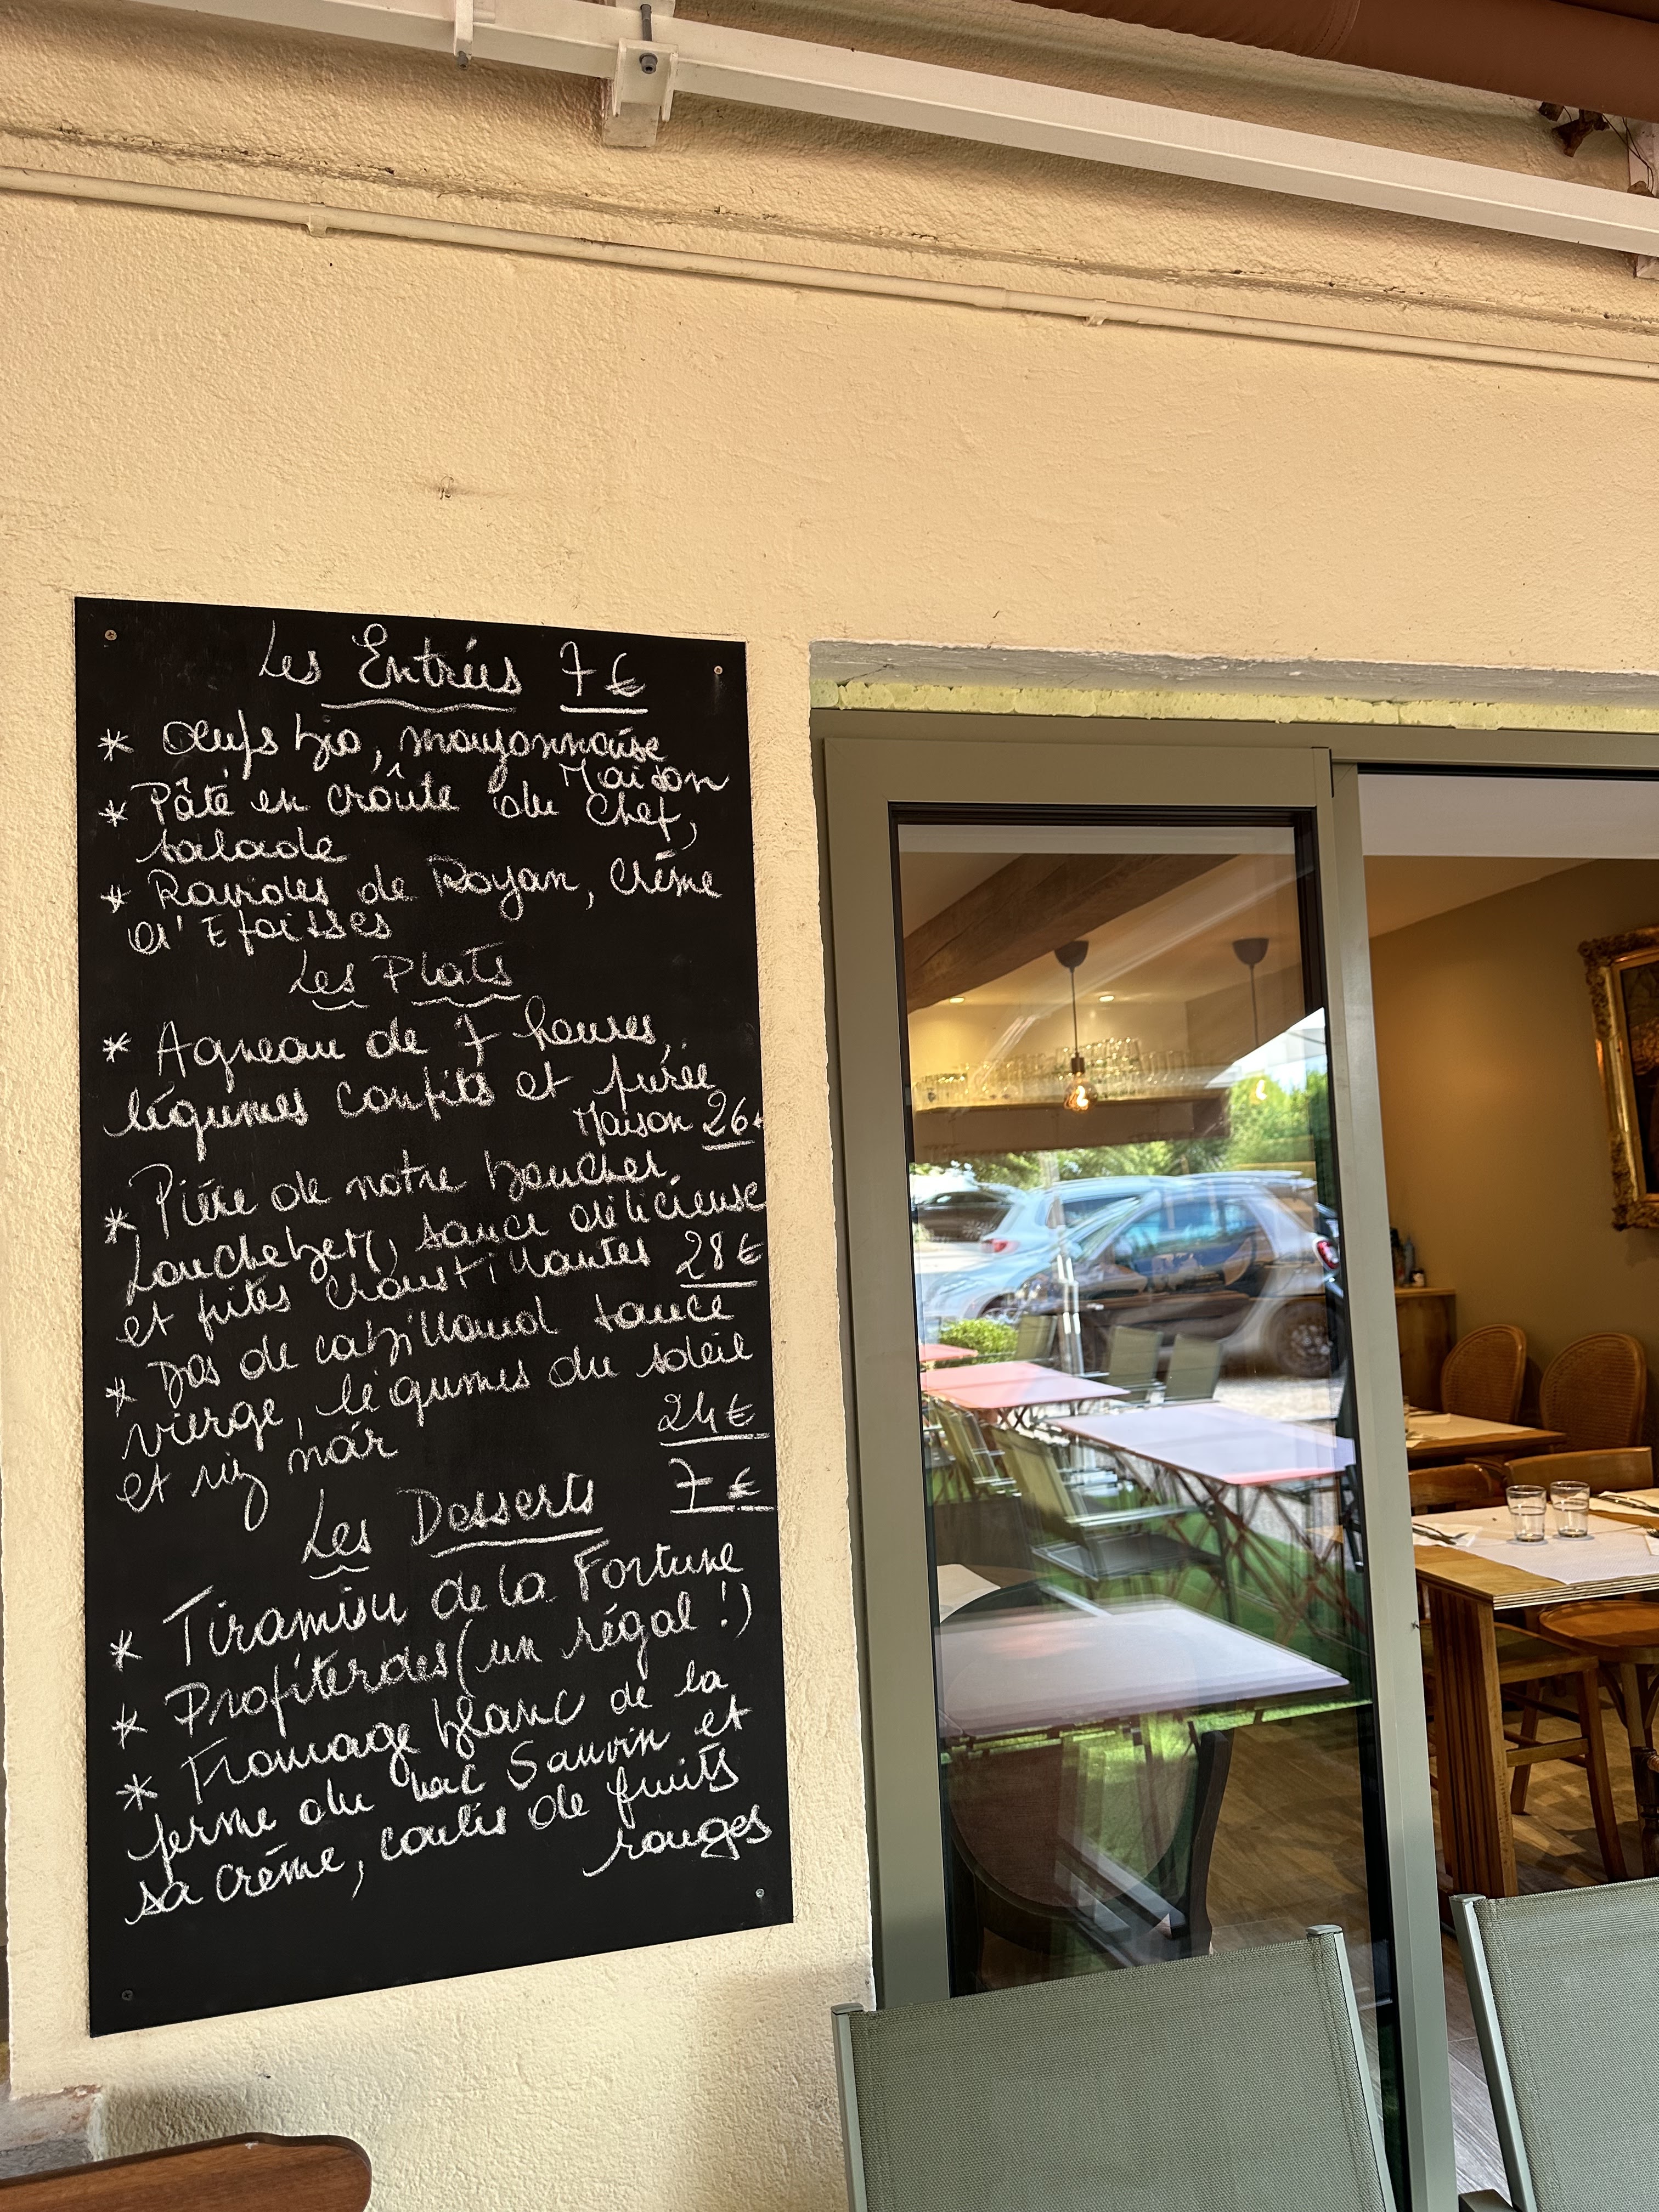 Les Entrées 7 €
* Oeufs bio, mayonnaise
Maison
* Pâté en croûte du Chef,
salade
* Ravioles de Royan, Crème
d'Epoisses
Les Plats
* Agneau de 7 heures,
légumes confits et purée
Maison 26€
* Pièce de notre boucher
, sauce délicieuse
et frites croustillantes 28 €
* Dos de cabillaud sauce
vierge, légumes du soleil
et riz noir 24 €
Les Desserts 7 €
* Tiramisu de la Fortune
* Profiteroles (un régal !)
* Fromage blanc de la
ferme du Sauvin et
sa crème, coulis de fruits
rouges